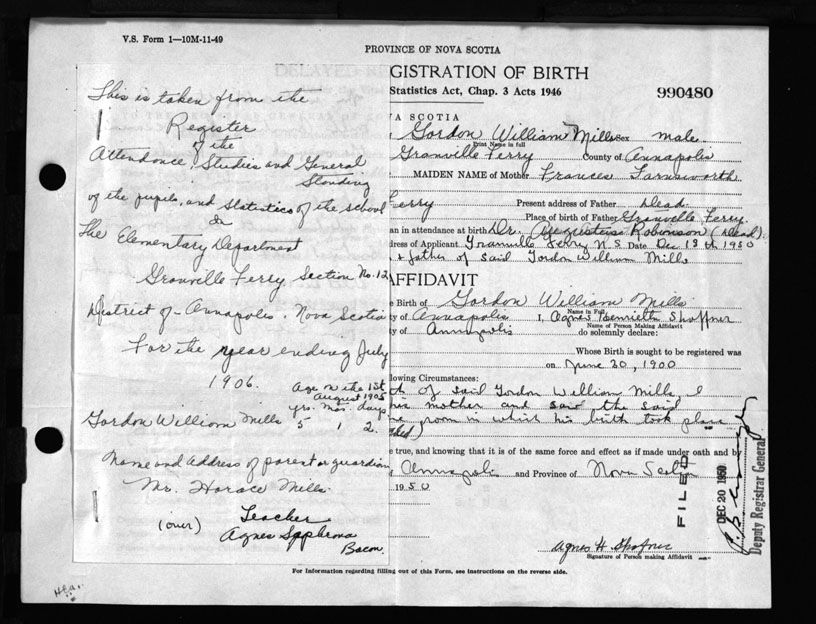 V.S. Form 1—10M-11-49
PROVINCE OF NOVA SCOTIA
GISTRATION OF BIRTH
Statistics Act, Chap. 3 Acts 1946
990480
VA SCOTIA
Gordon William Mills Sex male
Print Name in full
Granville Ferry County of Annapolis
MAIDEN NAME of Mother Frances Farnsworth
Ferry Present address of Father Dead
Place of birth of Father Granville Ferry
an in attendance at birth Dr. Augustus Robinson (Dead).
dress of Applicant Granville Ferry N.S Date Dec 18th 1950
& father of said Gordon William Mills
AFFIDAVIT
e Birth of Gordon William Mills
Name in Full
ty of Annapolis I, Agnes Henrietta Shaffner
Name of Person Making Affidavit
ty of Annapolis do solemnly declare:
Whose Birth is sought to be registered was
on June 30, 1900
lowing Circumstances:
th of said Gordon William Mills I
his mother and said the said
room in which his birth took place
e true, and knowing that it is of the same force and effect as if made under oath and by
f Annapolis and Province of Nova Scotia
1950
Agnes H Shafner
Signature of Person making Affidavit
FILED
DEC 20 1950
Deputy Registrar General
For Information regarding filling out of this Form, see instructions on the reverse side.
This is taken from the
Register
of the
Attendance, Studies and General
Standing
of the pupils, and Statistics of the school
In
The Elementary Department
Granville Ferry Section No. 12
District of — Annapolis. Nova Scotia
For the year ending July
1906.
Age on the 1st
August 1905
yrs. mos. days
Gordon William Mills 5 1 2.
Name and Address of parent or guardian
Mr. Horace Mills.
Teacher
(over) Agnes
Bacon.